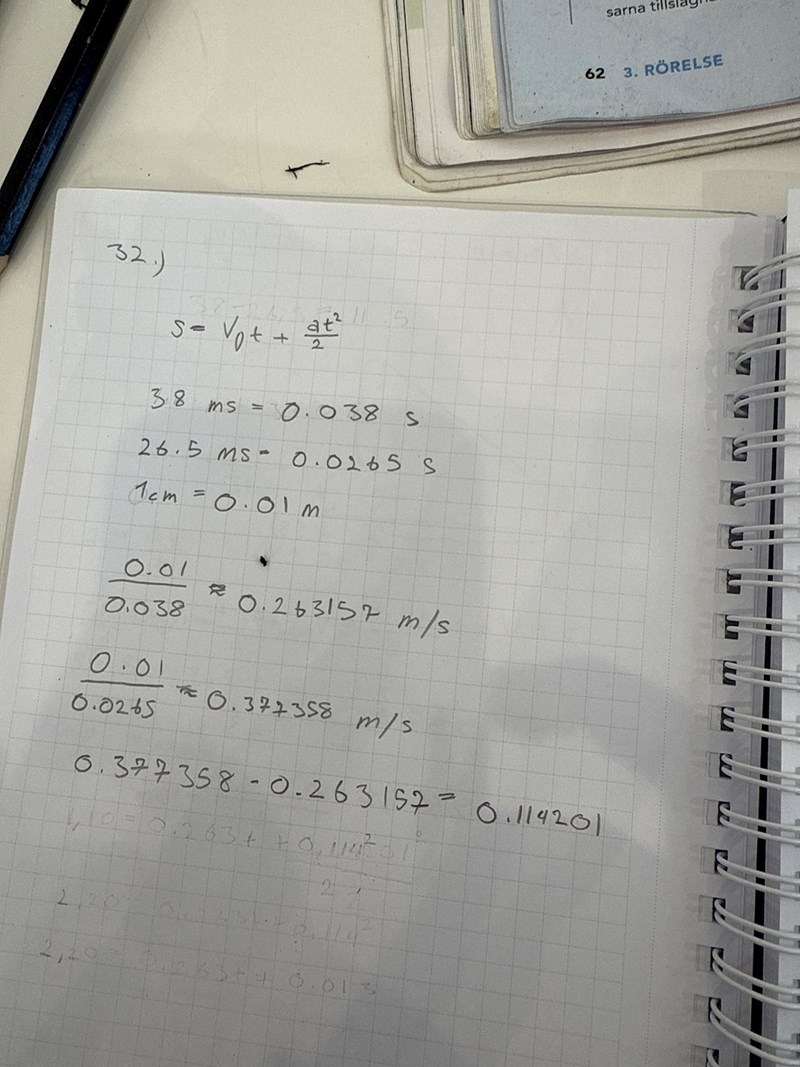 sarna tillslagn
62 3. RÖRELSE
32.)
s = V₀t + at²/2
38 ms = 0.038 s
26.5 ms = 0.0265 s
1cm = 0.01 m
0.01/0.038 ≈ 0.263157 m/s
0.01/0.0265 ≈ 0.377358 m/s
0.377358 - 0.263157 = 0.114201